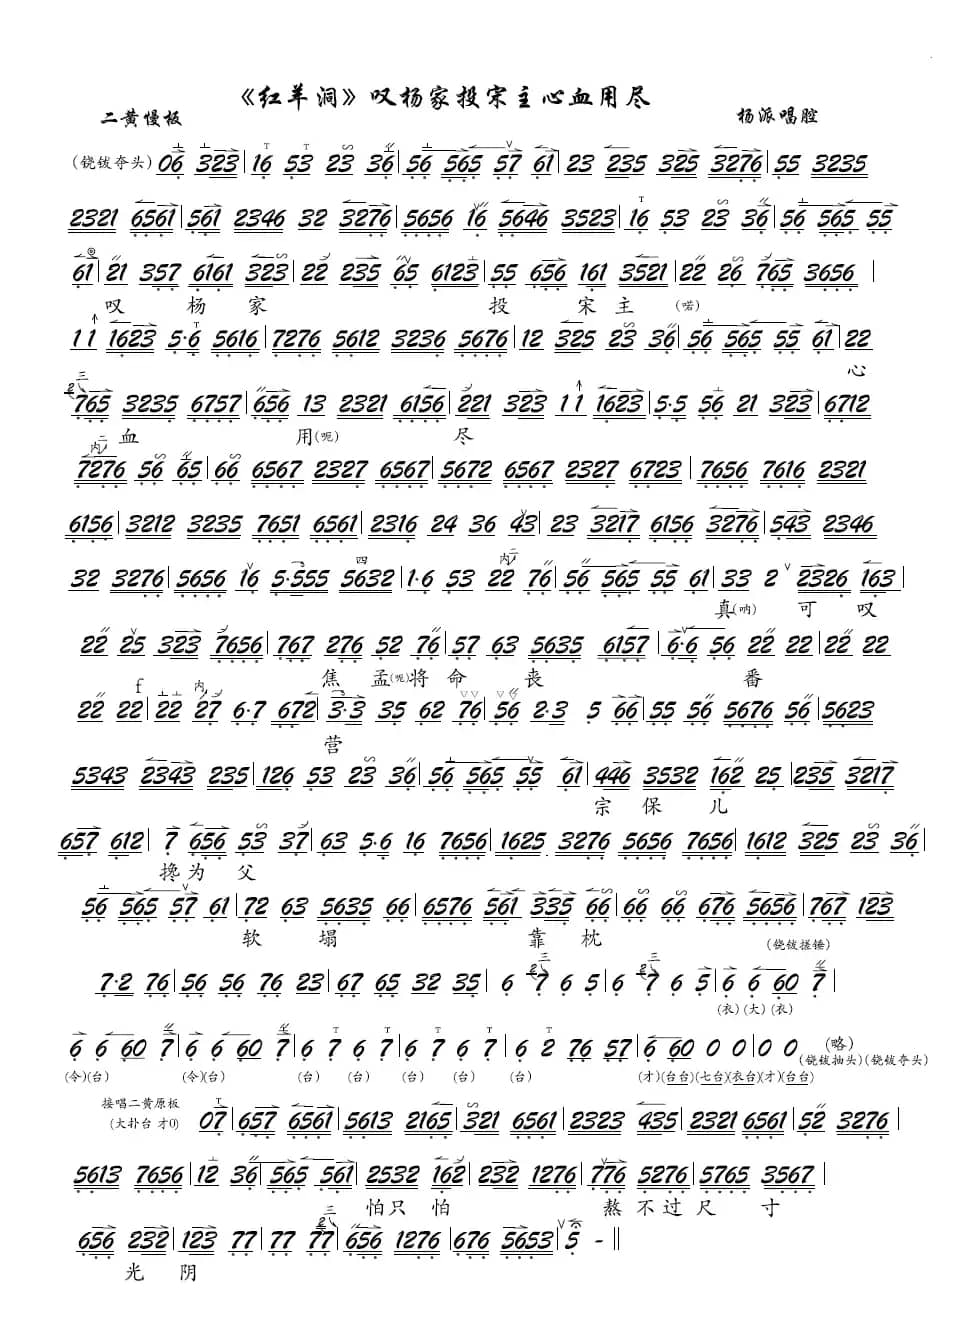 《红羊洞》叹杨家投宋主心血用尽
二黄慢板 杨派唱腔
(铙钹夺头) 06 323 | 16 53 23 36 | 56 565 57 61 | 23 235 325 3276 | 55 3235
2321 6561 | 561 2346 32 3276 | 5656 16 5646 3523 | 16 53 23 36 | 56 565 55
61 | 21 357 6161 323 | 22 235 65 6123 | 55 656 161 3521 | 22 26 765 3656 |
叹 杨 家 投 宋 主 (喏)
11 1623 5·6 5616 | 7276 5612 3236 5676 | 12 325 23 36 | 56 565 55 61 | 22
心
765 3235 6757 | 656 13 2321 6156 | 221 323 11 1623 | 5·5 56 21 323 | 6712
血 用(呃) 尽
7276 56 65 | 66 6567 2327 6567 | 5672 6567 2327 6723 | 7656 7616 2321
6156 | 3212 3235 7651 6561 | 2316 24 36 43 | 23 3217 6156 3276 | 543 2346
32 3276 | 5656 16 5·555 5632 | 1·6 53 22 76 | 56 565 55 61 | 33 2 2326 163 |
真(呐) 可 叹
22 25 323 7656 | 767 276 52 76 | 57 63 5635 6157 | 6·6 56 22 22 | 22 22
焦 孟(呃)将 命 丧 番
22 22 | 22 27 6·7 672 | 3·3 35 62 76 | 56 2·3 5 66 | 55 56 5676 56 | 5623
营
5343 2343 235 | 126 53 23 36 | 56 565 55 61 | 446 3532 162 25 | 235 3217
宗 保 儿
657 612 | 7 656 53 37 | 63 5·6 16 7656 | 1625 3276 5656 7656 | 1612 325 23 36 |
搀 为 父
56 565 57 61 | 72 63 5635 66 | 6576 561 335 66 | 66 66 676 5656 | 767 123
软 塌 靠 枕 (铙钹搓锤)
7·2 76 | 56 56 76 23 | 67 65 32 35 | 6 7 6 5 | 6 7 6 5 | 6 6 60 7 |
(衣) (大) (衣)
6 6 60 7 | 6 6 60 7 | 6 7 | 6 7 | 6 7 | 6 7 | 6 2 76 57 | 6 60 0 0 | 0 0 (略)
(令)(台) (令)(台) (台) (台) (台) (台) (台) (才)(台台)(七台)(衣台)(才)(台台) (铙钹抽头)(铙钹夺头)
接唱二黄原板
(大扑台 才0) 07 | 657 6561 | 5613 2165 | 321 6561 | 2323 435 | 2321 6561 | 52 3276 |
5613 7656 | 12 36 | 565 561 | 2532 162 | 232 1276 | 776 5276 | 5765 3567 |
怕只 怕 熬 不 过 尺 寸
656 232 | 123 77 | 77 77 | 656 1276 | 676 5653 | 5 - ‖
光 阴